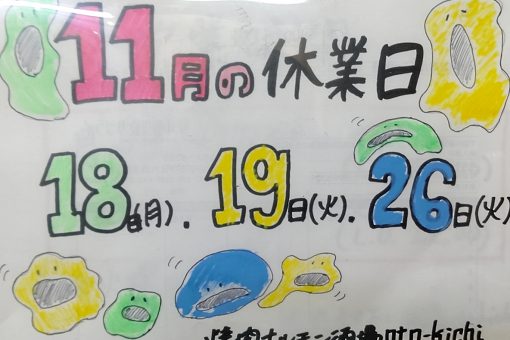 11月の休業日
18日(月).19日(火).26日(火)
焼肉ホルモン酒場oto-kichi